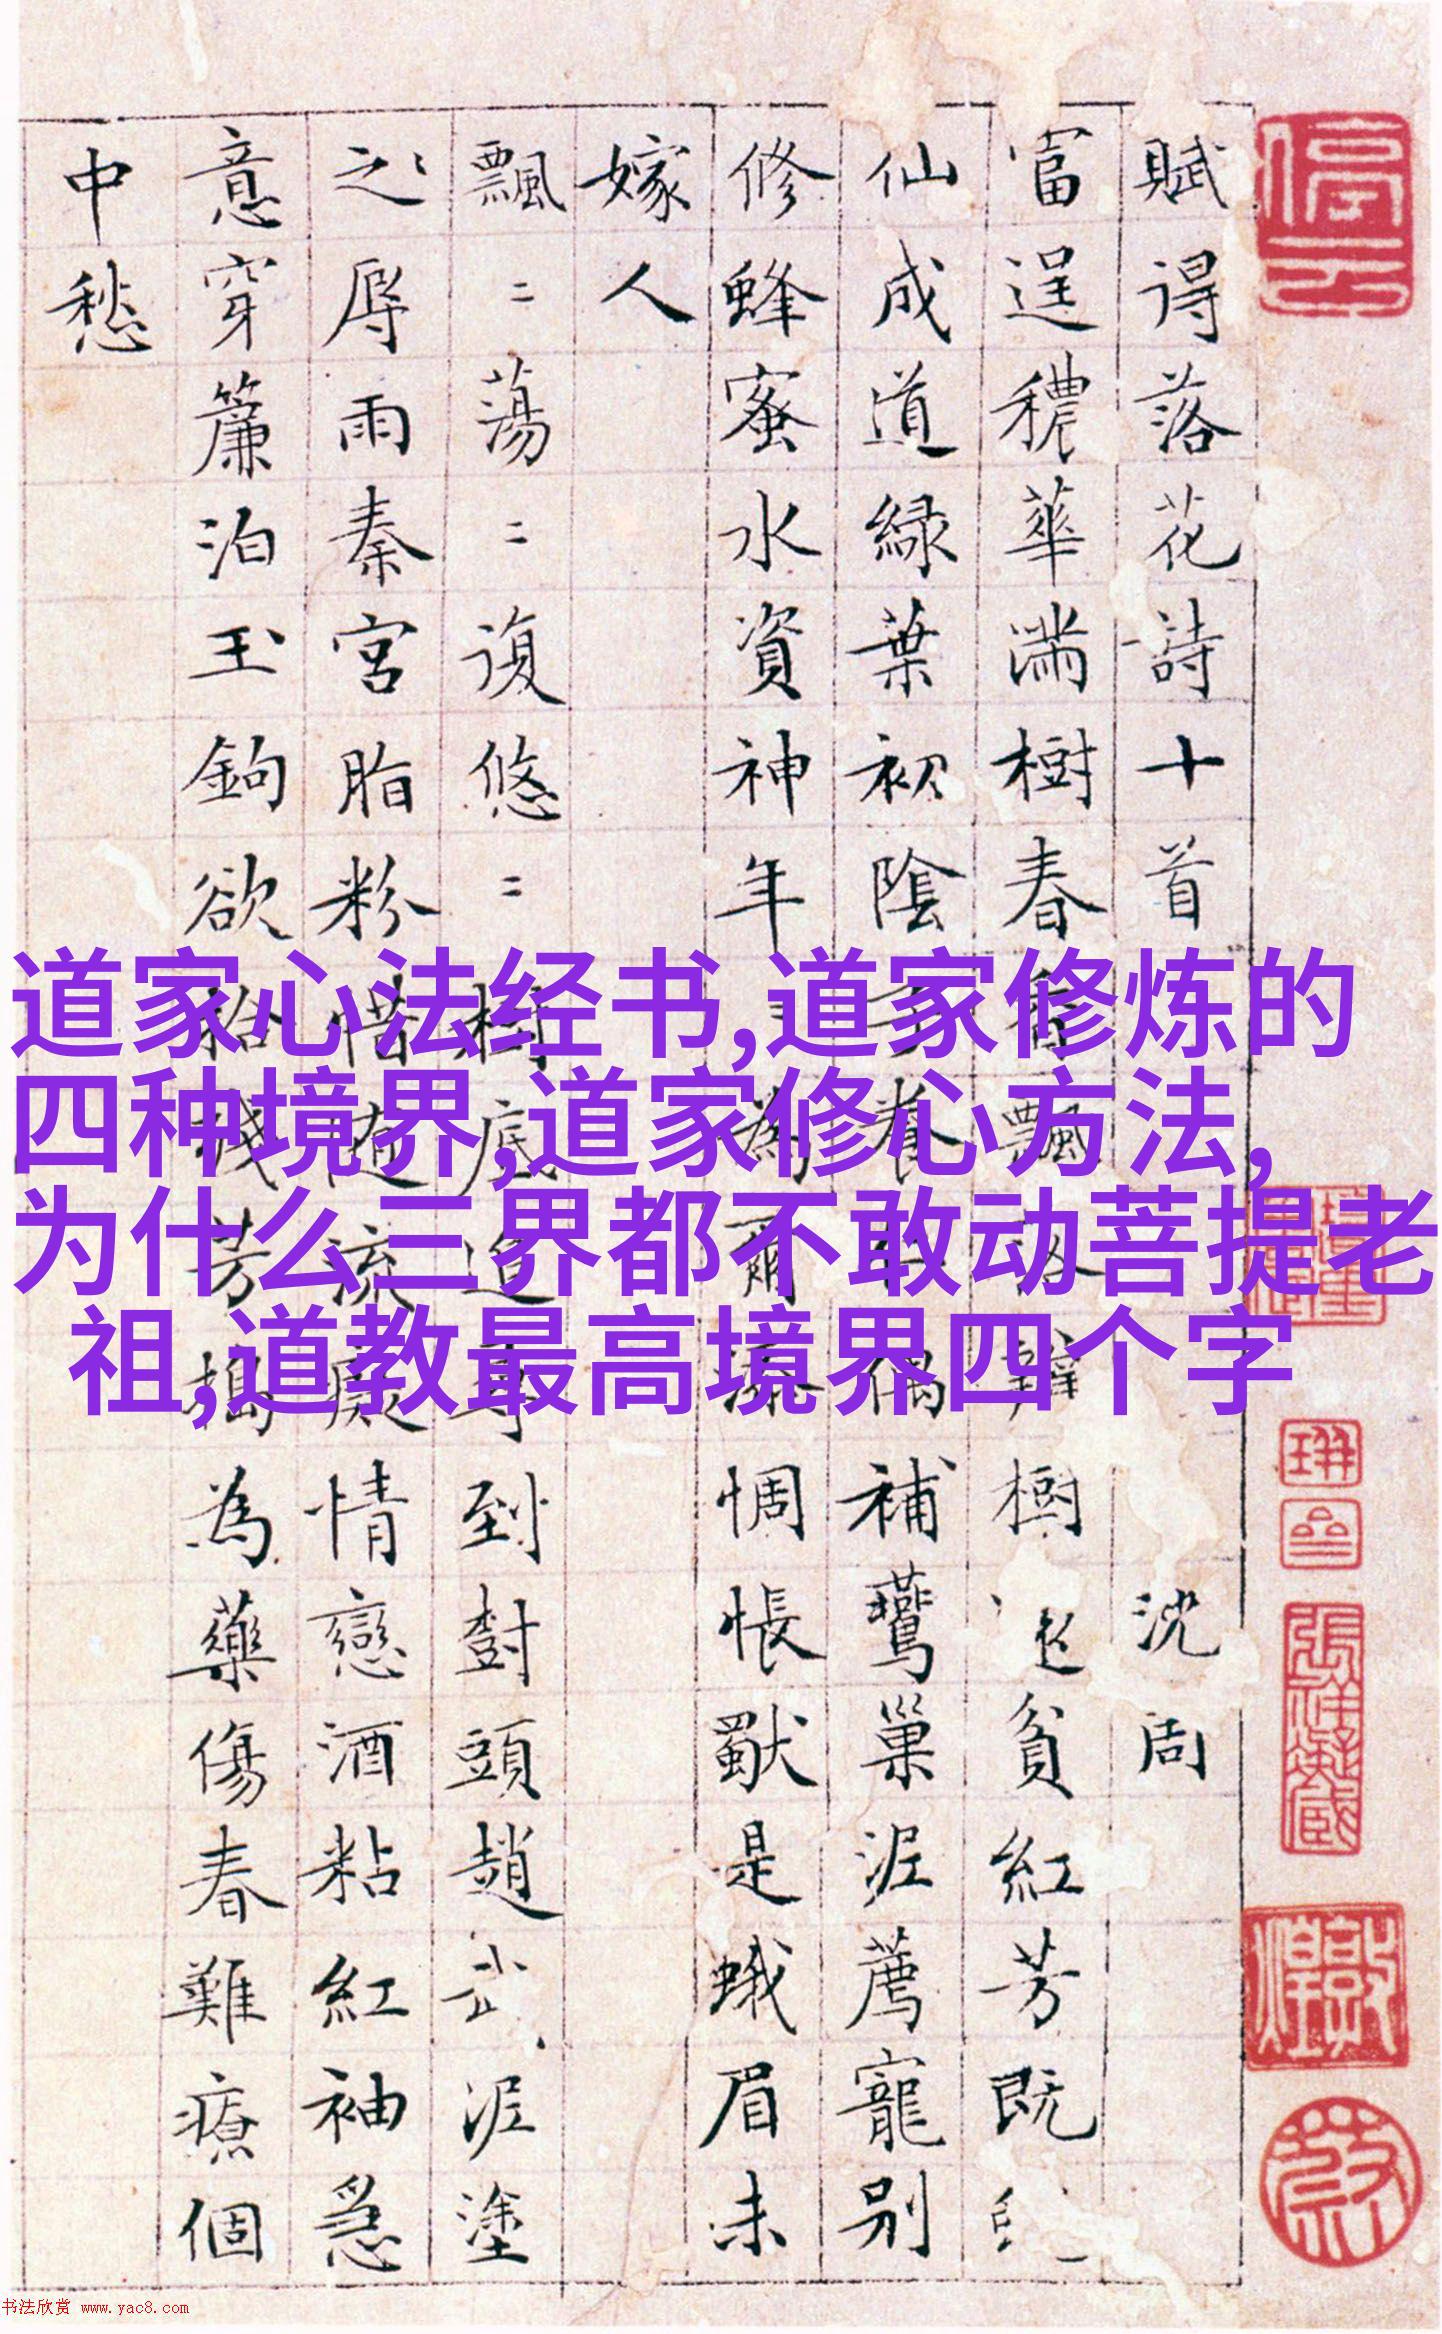 賦得落花詩十首 沈周
富逞穠華滿樹春香飄瓣樹還貧紅芳既
仙成道綠葉初陰子養仁偶補鶯巢泥薦寵別
修蜂蜜水資神年=為爾添惆悵獸是蛾眉未
嫁人
飄=蕩=復悠=樹底追尋到樹頭趙武泥塗
之辱雨秦宮脂粉惜隨流癡情戀酒粘紅袖急
意穿簾泊玉鉤欲拾殘芳搗為藥傷春難療個
中愁
道家心法经书,道家修炼的
四种境界,道家修心方法,
为什么三界都不敢动菩提老
祖,道教最高境界四个字
书法欣赏 www.yac8.com